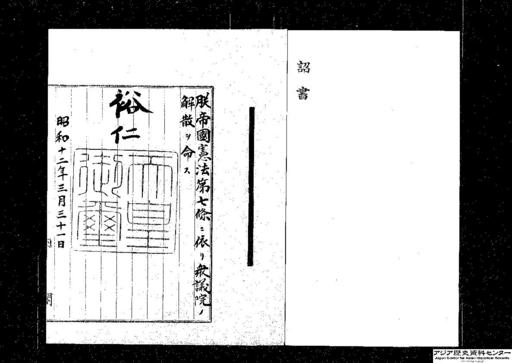 詔書
朕帝國憲法第七條ニ依リ衆議院ノ
解散ヲ命ス
裕仁
天皇御璽
昭和十二年三月三十一日
アジア歴史資料センター
Japan Center for Asian Historical Records